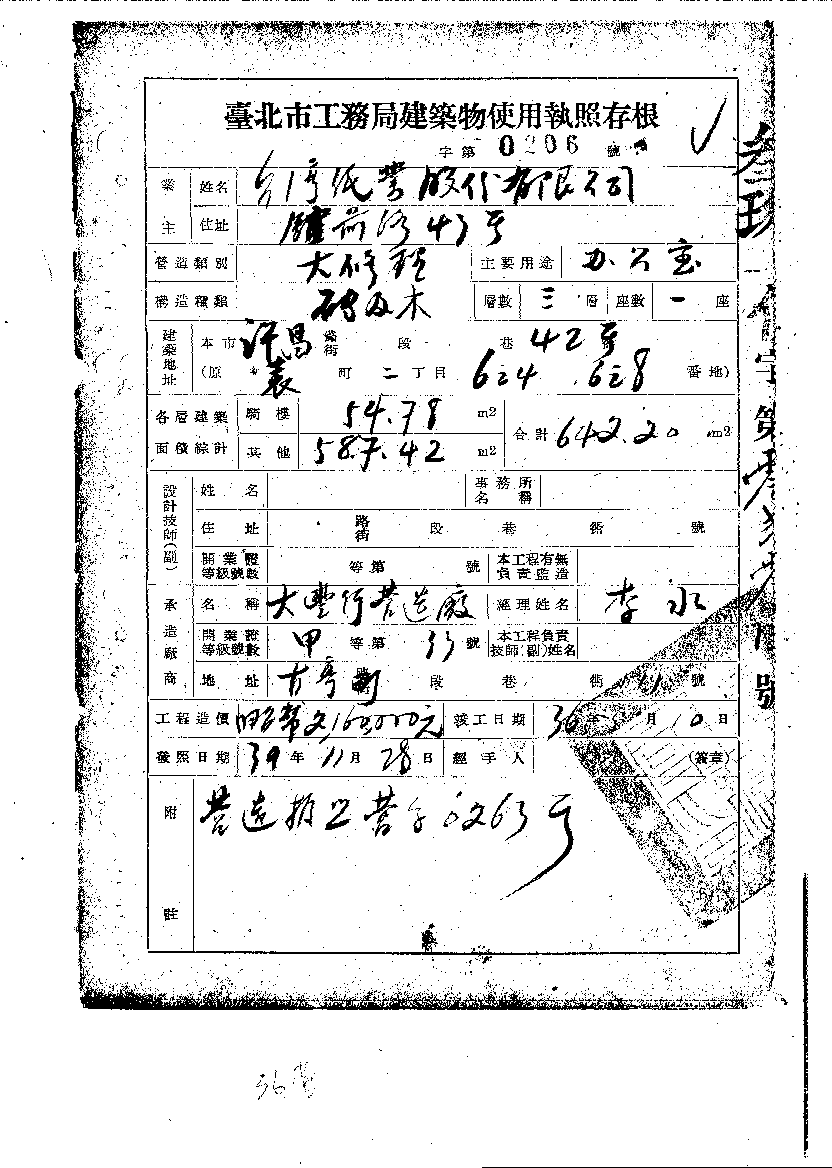 臺北市工務局建築物使用執照存根
字第 0206 號
業主 姓名 台灣紙業股份有限公司
住址 館前路43号
營造類別 大修理 主要用途 办公室
構造種類 磚及木 層數 三 層 座數 一 座
建築地址 本市 許昌 街 段 巷 42号
(原 表 町 二 丁目 624 628 番地)
各層建築面積綜計 騎樓 54.78 m2 合計 642.20 m2
其他 587.42 m2
設計技師(副) 姓名 事務所名稱
住址 路街 段 巷 衖 號
開業證等級號數 等第 號 本工程有無負責監造
承造廠商 名稱 大豐行營造廠 經理姓名 李永
開業證等級號數 甲 等第 33 號 本工程負責技師(副)姓名
地址 段 巷 衖 號
工程造價 160,000元 竣工日期 36年 月10日
發照日期 39年11月28日 經手人 (簽章)
附註 營造執照營字0263号
36營